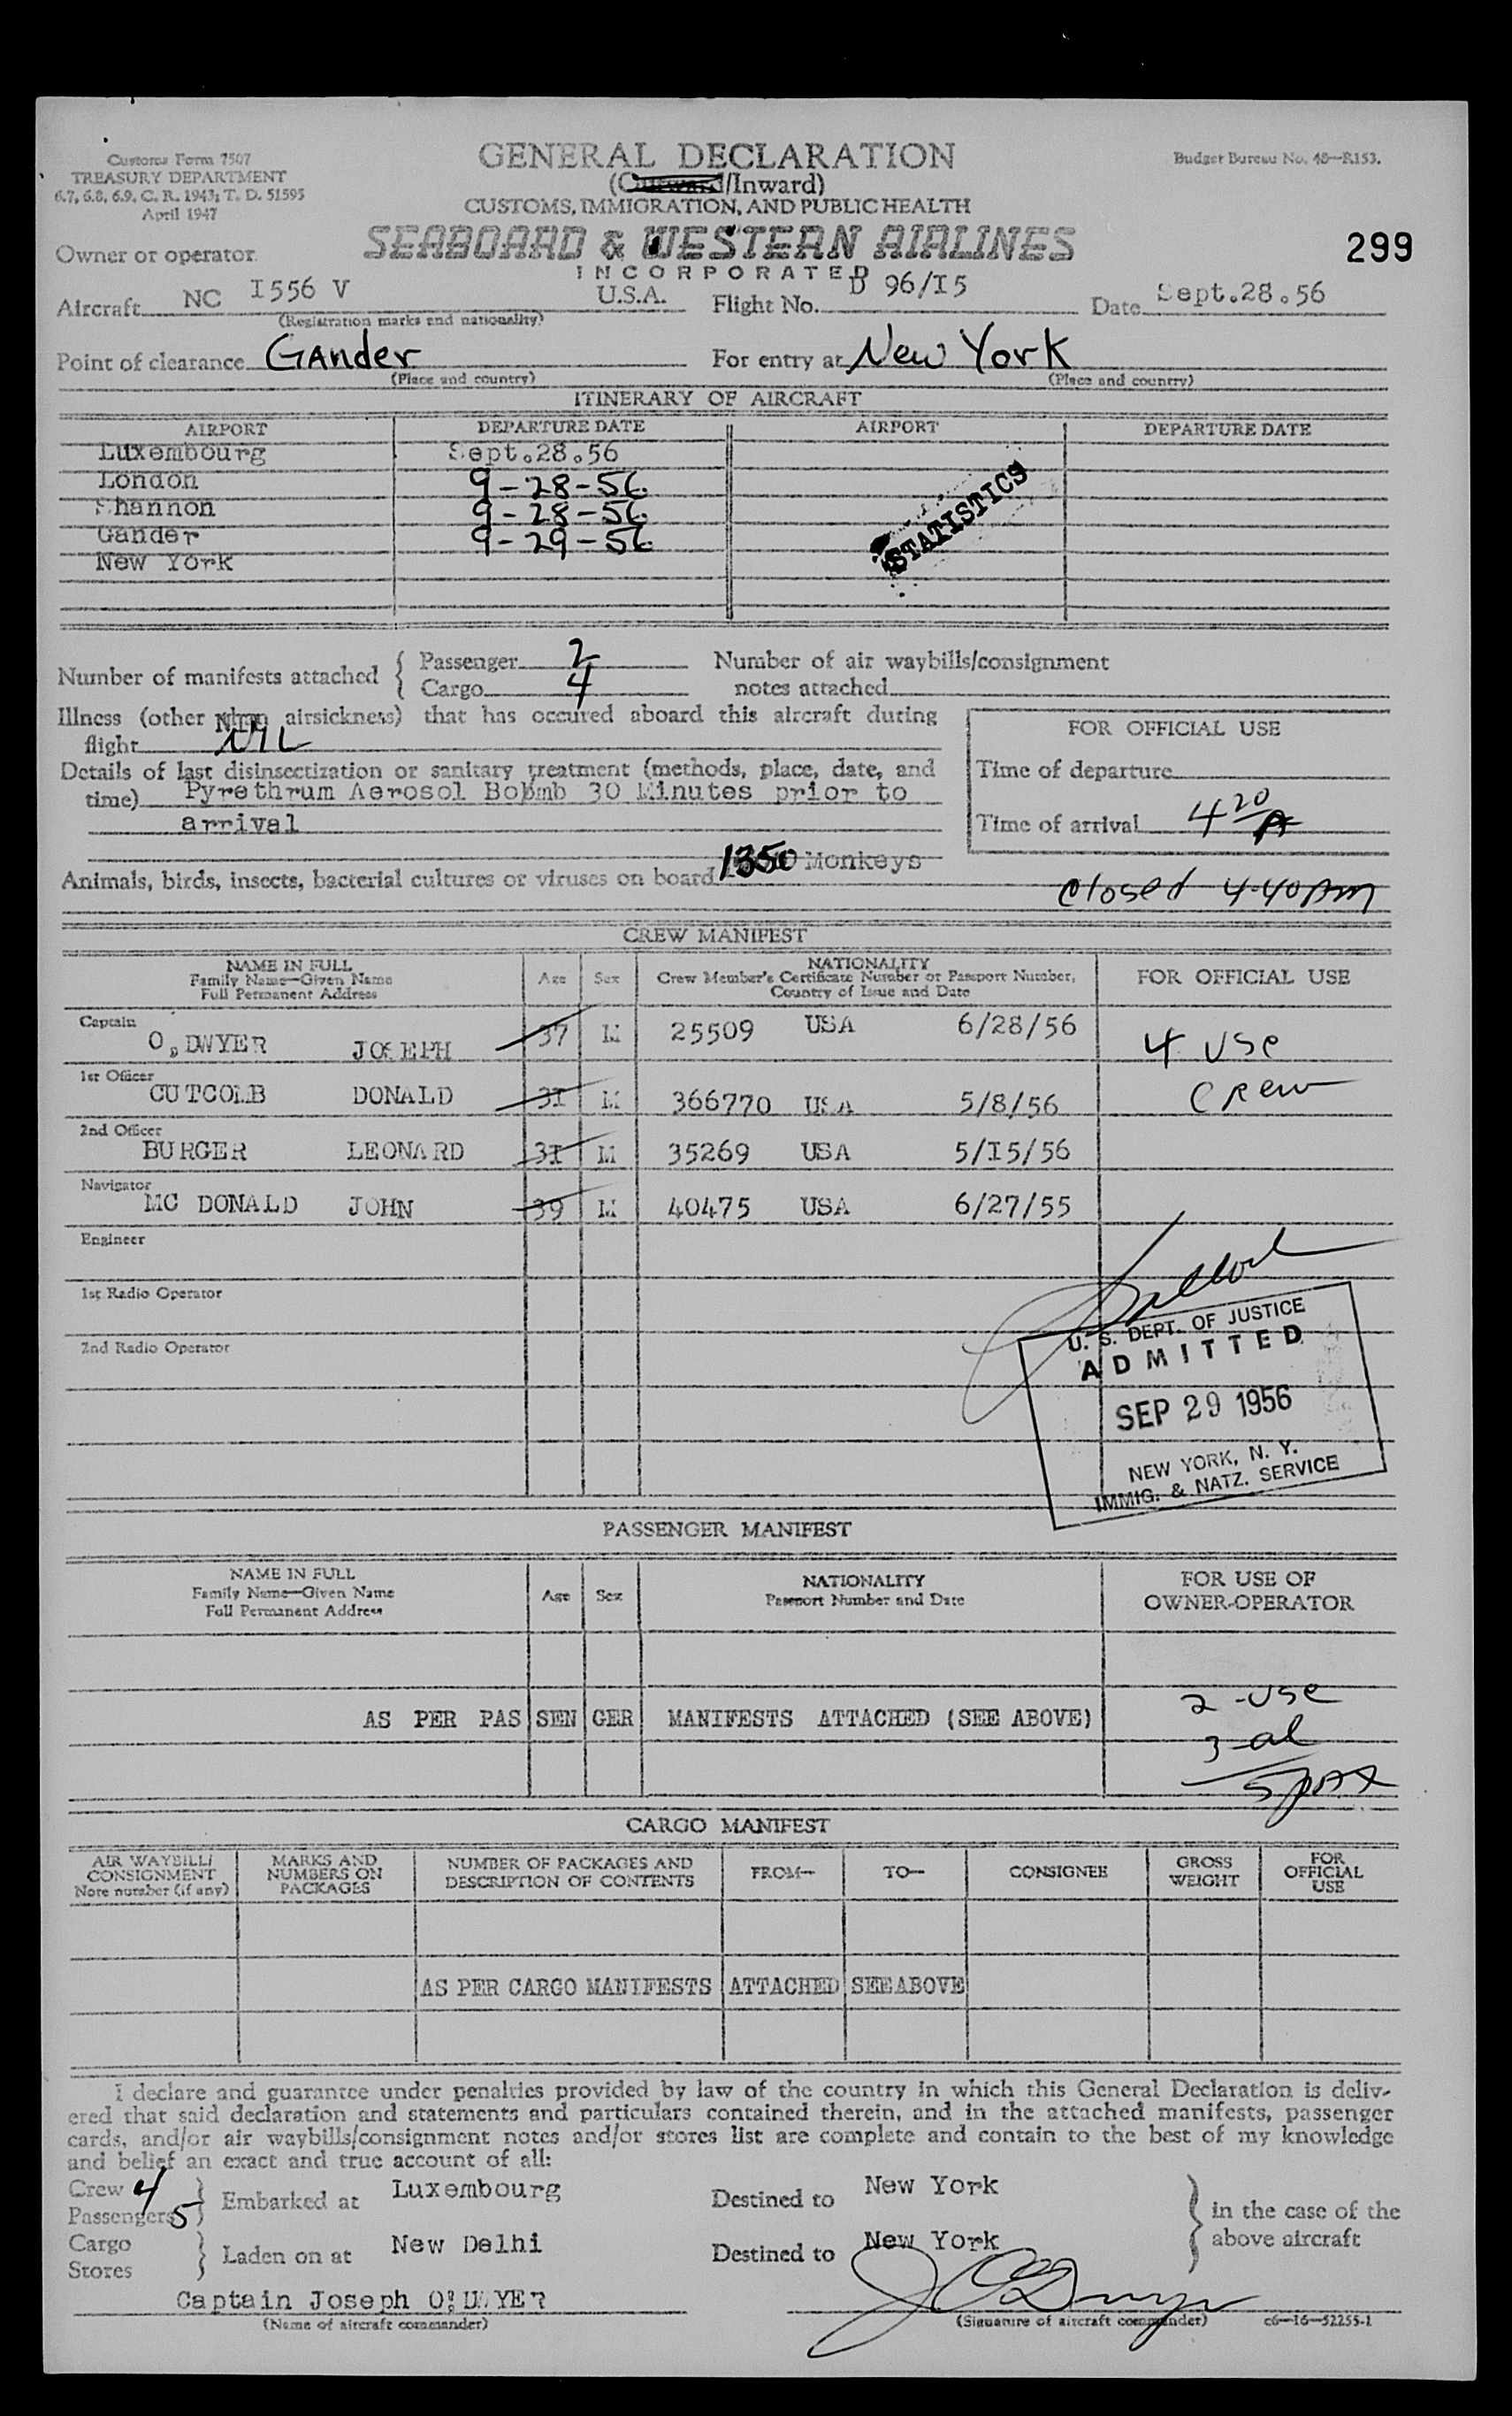 Customs Form 7507
TREASURY DEPARTMENT
6.7, 6.8, 6.9, C. R. 1943; T. D. 51595
April 1947
GENERAL DECLARATION
(Outward/Inward)
CUSTOMS, IMMIGRATION, AND PUBLIC HEALTH
Budget Bureau No. 48—R153.
SEABOARD & WESTERN AIRLINES
INCORPORATED
299
Owner or operator
Aircraft NC I556 V U.S.A. Flight No. D 96/I5 Date Sept.28.56
(Registration marks and nationality)
Point of clearance Gander For entry at New York
(Place and country) (Place and country)
ITINERARY OF AIRCRAFT
AIRPORT DEPARTURE DATE AIRPORT DEPARTURE DATE
Luxembourg Sept.28.56
London 9-28-56
Shannon 9-28-56
Gander 9-29-56
New York
STATISTICS
Number of manifests attached { Passenger 2
Cargo 4
Number of air waybills/consignment
notes attached
Illness (other than airsickness) that has occured aboard this aircraft during
flight NIL
Details of last disinsectization or sanitary treatment (methods, place, date, and
time) Pyrethrum Aerosol Bobmb 30 Minutes prior to
arrival
FOR OFFICIAL USE
Time of departure
Time of arrival 4 20 A
Animals, birds, insects, bacterial cultures or viruses on board 1350 Monkeys
Closed 4-40 AM
CREW MANIFEST
NAME IN FULL
Family Name—Given Name
Full Permanent Address
Age Sex
NATIONALITY
Crew Member's Certificate Number or Passport Number,
Country of Issue and Date
FOR OFFICIAL USE
Captain
O,DWYER JOSEPH 37 M 25509 USA 6/28/56 4 USC
1st Officer
CUTCOMB DONALD 3I M 366770 USA 5/8/56 Crew
2nd Officer
BURGER LEONARD 3I M 35269 USA 5/I5/56
Navigator
MC DONALD JOHN 39 M 40475 USA 6/27/55
Engineer
1st Radio Operator
2nd Radio Operator
U. S. DEPT. OF JUSTICE
ADMITTED
SEP 29 1956
NEW YORK, N. Y.
IMMIG. & NATZ. SERVICE
PASSENGER MANIFEST
NAME IN FULL
Family Name—Given Name
Full Permanent Address
Age Sex
NATIONALITY
Passport Number and Date
FOR USE OF
OWNER-OPERATOR
AS PER PAS SEN GER MANIFESTS ATTACHED (SEE ABOVE)
2-USC
3-al
5 pax
CARGO MANIFEST
AIR WAYBILL/
CONSIGNMENT
Note number (if any)
MARKS AND
NUMBERS ON
PACKAGES
NUMBER OF PACKAGES AND
DESCRIPTION OF CONTENTS
FROM— TO— CONSIGNEE
GROSS
WEIGHT
FOR
OFFICIAL
USE
AS PER CARGO MANIFESTS ATTACHED SEE ABOVE
I declare and guarantee under penalties provided by law of the country in which this General Declaration is deliv-
ered that said declaration and statements and particulars contained therein, and in the attached manifests, passenger
cards, and/or air waybills/consignment notes and/or stores list are complete and contain to the best of my knowledge
and belief an exact and true account of all:
Crew 4
Passengers 5 } Embarked at Luxembourg Destined to New York
Cargo
Stores } Laden on at New Delhi Destined to New York
} in the case of the
above aircraft
Captain Joseph O'DWYER
(Name of aircraft commander)
(Signature of aircraft commander) c6—16—52255-1